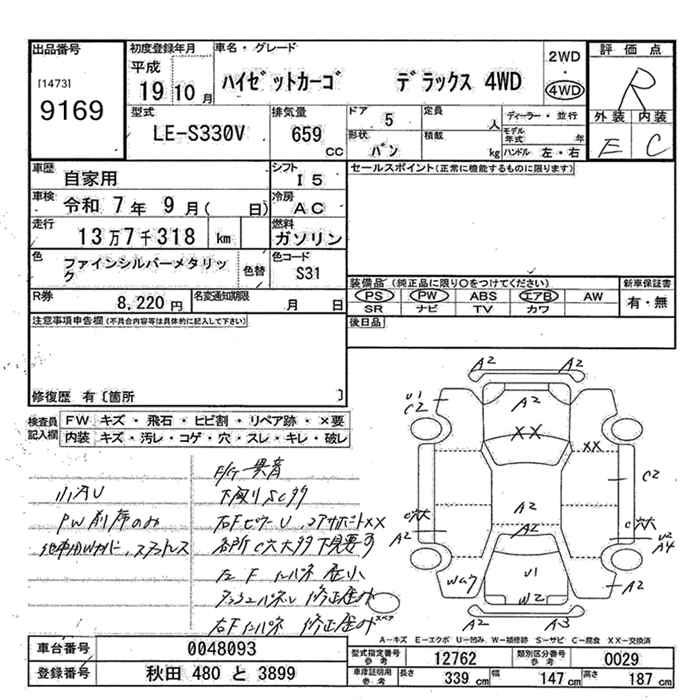 出品番号
[1473]
9169
初度登録年月
平成
19 10 月
車名・グレード
ハイゼットカーゴ デラックス 4WD
2WD
・
4WD
評価点
R
外装 内装
E C
型式
LE-S330V
排気量
659 CC
ドア 5
形状 バン
定員 人
積載 kg
ディーラー・並行
モデル年式 年
ハンドル 左・右
車歴 自家用
車検 令和 7 年 9 月( 日)
走行 13万7千318 km
色 ファインシルバーメタリック
色替
シフト I 5
冷房 AC
燃料 ガソリン
色コード S31
R券 8,220 円
名変通知期限 月 日
セールスポイント(正常に機能するものに限ります)
装備品 (純正品に限り○をつけてください)
PS PW ABS エアB AW
SR ナビ TV カワ
新車保証書
有・無
後日品
注意事項申告欄(不具合内容等は具体的に記入して下さい)
修復歴 有〔箇所 〕
検査員記入欄
FW キズ・飛石・ヒビ割・リペア跡・×要
内装 キズ・汚レ・コゲ・穴・スレ・キレ・破レ
PW前席のみ
下廻りSC多
A2 A2
U1
C2
A2
XX
XX
C2
A2
A2
C穴大
A2
C穴大
U2
A4
U1
W2
A2
A2 A3
スペア
A-キズ E-エクボ U-凹み W-補修跡 S-サビ C-腐食 XX-交換済
車台番号 0048093
登録番号 秋田 480 と 3899
型式指定番号 参考 12762
類別区分番号 参考 0029
車庫証明用 参考 長さ 339 cm 幅 147 cm 高さ 187 cm